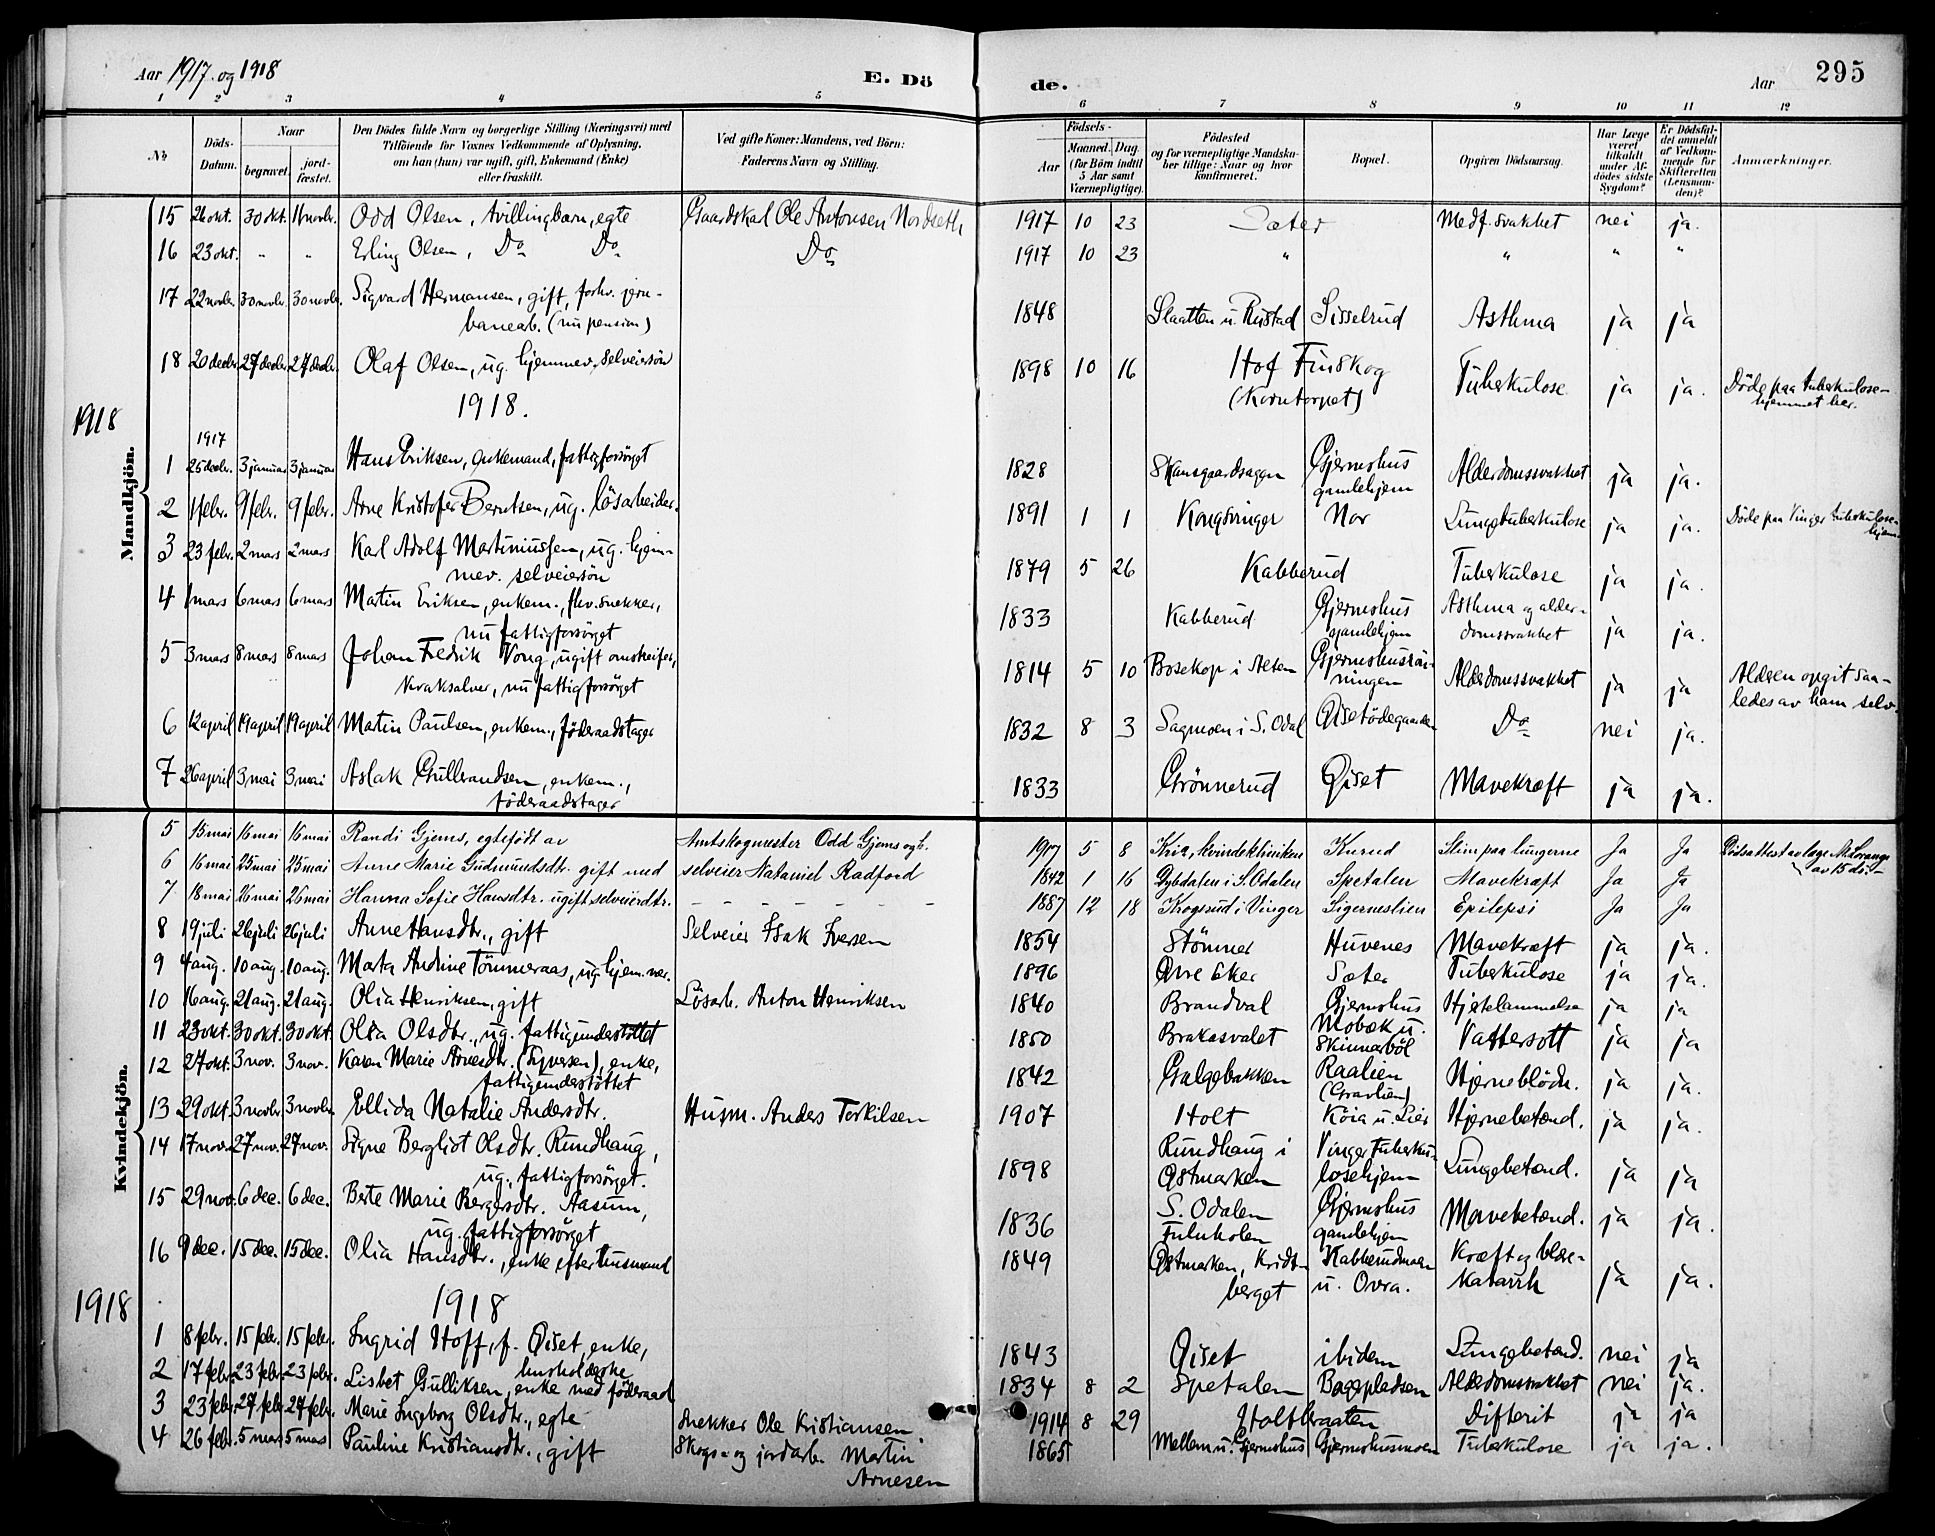 Aar 1917 og 1918 E. Dö de. Aar 295
1 2 3 4 5 6 7 8 9 10 11 12
No Döds-Datum. Naar begravet. jordfæstet. Den Dödes fulde Navn og borgerlige Stilling (Næringsvei) med Tilföiende for Voxnes Vedkommende af Oplysning, om han (hun) var ugift, gift, Enkemand (Enke) eller fraskilt. Ved gifte Koner: Mandens, ved Börn: Faderens Navn og Stilling. Födsels- Aar Maaned. Dag. (for Börn indtil 5 Aar samt Værnepligtige). Födested og for værnepligtige Mandskaber tillige: Naar og hvor konfirmeret. Bopæl. Opgiven Dödsaarsag. Har Læge været tilkaldt under Afdödes sidste Sygdom? Er Dödsfaldet anmeldt af Vedkommende for Skifteretten (Lensmanden)? Anmærkninger.
Mandkjön.
15 26 okt. 30 okt. 11 novbr. Odd Olsen, tvillingbarn, egte Gaardskal Ole Antonsen Nordseth 1917 10 23 Sæter Medf. svakhet nei ja.
16 23 okt. " " Erling Olsen, Do Do Do 1917 10 23 " " " "
17 22 novbr. 30 novbr. 30 novbr. Sigvard Hermansen, gift, forhv. jern-
banearb. (nu pension) 1848 Slaatten u. Rustad Sisselrud Asthma ja ja
18 20 decbr. 27 decbr. 27 decbr. Olaf Olsen, ug. hjemmev. selveiersön 1898 10 16 Hof Finskog
(Korntorpet) Tuberkulose ja ja. Döde paa tuberkulose-
hjemmet her.
1918.
1918
1 1917 25 decbr. 3 januar 3 januar Hans Eriksen, enkemand, fattigforsörget 1828 Skansgaardsaggen Gjemshus
gamlehjem Alderdomssvakhet ja ja.
2 1 febr. 9 febr. 9 febr. Arne Kristofer Berntsen, ug. lösarbeider. 1891 1 1 Kongsvinger Nor Lungetuberkulose ja ja. Döde paa Vinger tuberkulose-
hjem
3 23 febr. 2 mars 2 mars Karl Adolf Martiniussen, ug. hjem-
mev. selveiersön 1879 5 26 Kabberud Tuberkulose ja ja.
4 1 mars 6 mars 6 mars Martin Eriksen, enkem., fhv. snekker,
nu fattigforsörget 1833 Kabberud Gjemshus
gamlehjem Asthma og alder-
domssvakhet ja ja.
5 3 mars 8 mars 8 mars Johan Fredrik Vong, ugift omstreifer,
kvaksalver, nu fattigforsörget 1814 5 10 Bosekop i Alten Alderdomssvakhet ja ja Alderen opgit saa-
ledes av ham selv.
6 12 april 19 april 19 april Martin Paulsen, enkem., föderaadstager 1832 8 3 Sagmoen i S. Odal Öisetödegaarden Do nei ja.
7 26 april 3 mai 3 mai Aslak Gulbrandsen, enkem.,
föderaadstager 1833 Grönnerud Öiset Mavekræft ja ja.
Kvindekjön.
5 15 mai 16 mai 16 mai Randi Gjems, egtefödt av Amtskogmester Odd Gjems og h. 1917 5 8 Kria, kvindekliniken Knrud Slim paa lungerne Ja Ja Dödsattest av læge M. Lorange
av 15 ds.
6 16 mai 25 mai 25 mai Anne Marie Gudmundsdtr. gift med selveier Nataniel Radford 1842 1 16 Dybdalen i S. Odalen Spetalen Mavekræft Ja Ja
7 18 mai 26 mai 26 mai Hanna Sofie Hansdtr. ugift selveierdtr. 1887 12 18 Krogsrud i Vinger Sigerneslien Epilepsi Ja Ja
8 19 juli 26 juli 26 juli Anne Hansdtr., gift Selveier Isak Iversen 1854 Stömner Huvenes Mavekræft ja ja.
9 4 aug. 10 aug. 10 aug. Marta Andrine Tömmeraas, ug. hjem. vær. 1896 Övre Eker Sæter Tuberkulose ja ja.
10 16 aug. 21 aug. 21 aug. Olia Henriksen, gift Lösarb. Anton Henriksen 1840 Brandval Gjemshus Hjertelammelse ja ja
11 23 okt. 30 okt. 30 okt. Olea Olsdtr., ug. fattigunderstöttet 1850 Brakasvalet Mobæk u.
Skinnarböl Vattersott ja ja
12 27 okt. 3 nov. 3 nov. Karen Marie Arnesdtr. (Syversen), enke,
fattigunderstöttet 1842 Galgebakken Raalien
(Gravlien) Hjerneblödn. ja ja.
13 29 okt. 3 novbr. 3 novbr. Ellida Natalie Andersdtr. Husm. Anders Torkilsen 1907 Holt Koia u. Lier Hjernebetænd. ja ja.
14 17 nov. 27 nov. 27 nov. Signe Bergliot Olsdtr. Rundhaug,
ug. fattigforsörget. 1898 Rundhaug i
Östmarken Vinger Tuberku-
losehjem Lungebetænd. ja ja
15 29 nov. 6 dec. 6 dec. Berte Marie Bergersdtr. Aasum,
ug. fattigforsörget 1836 S. Odalen
Fuluholen Gjemshus
gamlehjem Mavebetænd. ja ja.
16 9 dec. 15 dec. 15 dec. Olia Hansdtr., enke efter husmand 1849 Östmarken, Kridt-
berget Kabberudmoen
u. Övra. Kræft og blære-
katarrh ja ja.
1918 1918
1 8 febr. 15 febr. 15 febr. Ingrid Hoff, f. Öiset, enke,
husholderske 1843 Öiset ibidem Lungebetænd. nei ja
2 17 febr. 23 febr. 23 febr. Lisbet Gulliksen, enke med föderaad 1834 8 2 Spetalen Bagepladsen Alderdomssvakhet nei ja.
3 23 febr. 27 febr. 27 febr. Marie Ingeborg Olsdtr., egte Snekker Ole Kristiansen 1914 8 29 Holtbraaten Difterit ja ja
4 26 febr. 5 mars 5 mars Pauline Kristiansdtr., gift Skogs- og jordarb. Martin
Arnesen 1865 Mellem u. Gjemshus Gjemshusmoen Tuberkulose ja ja.